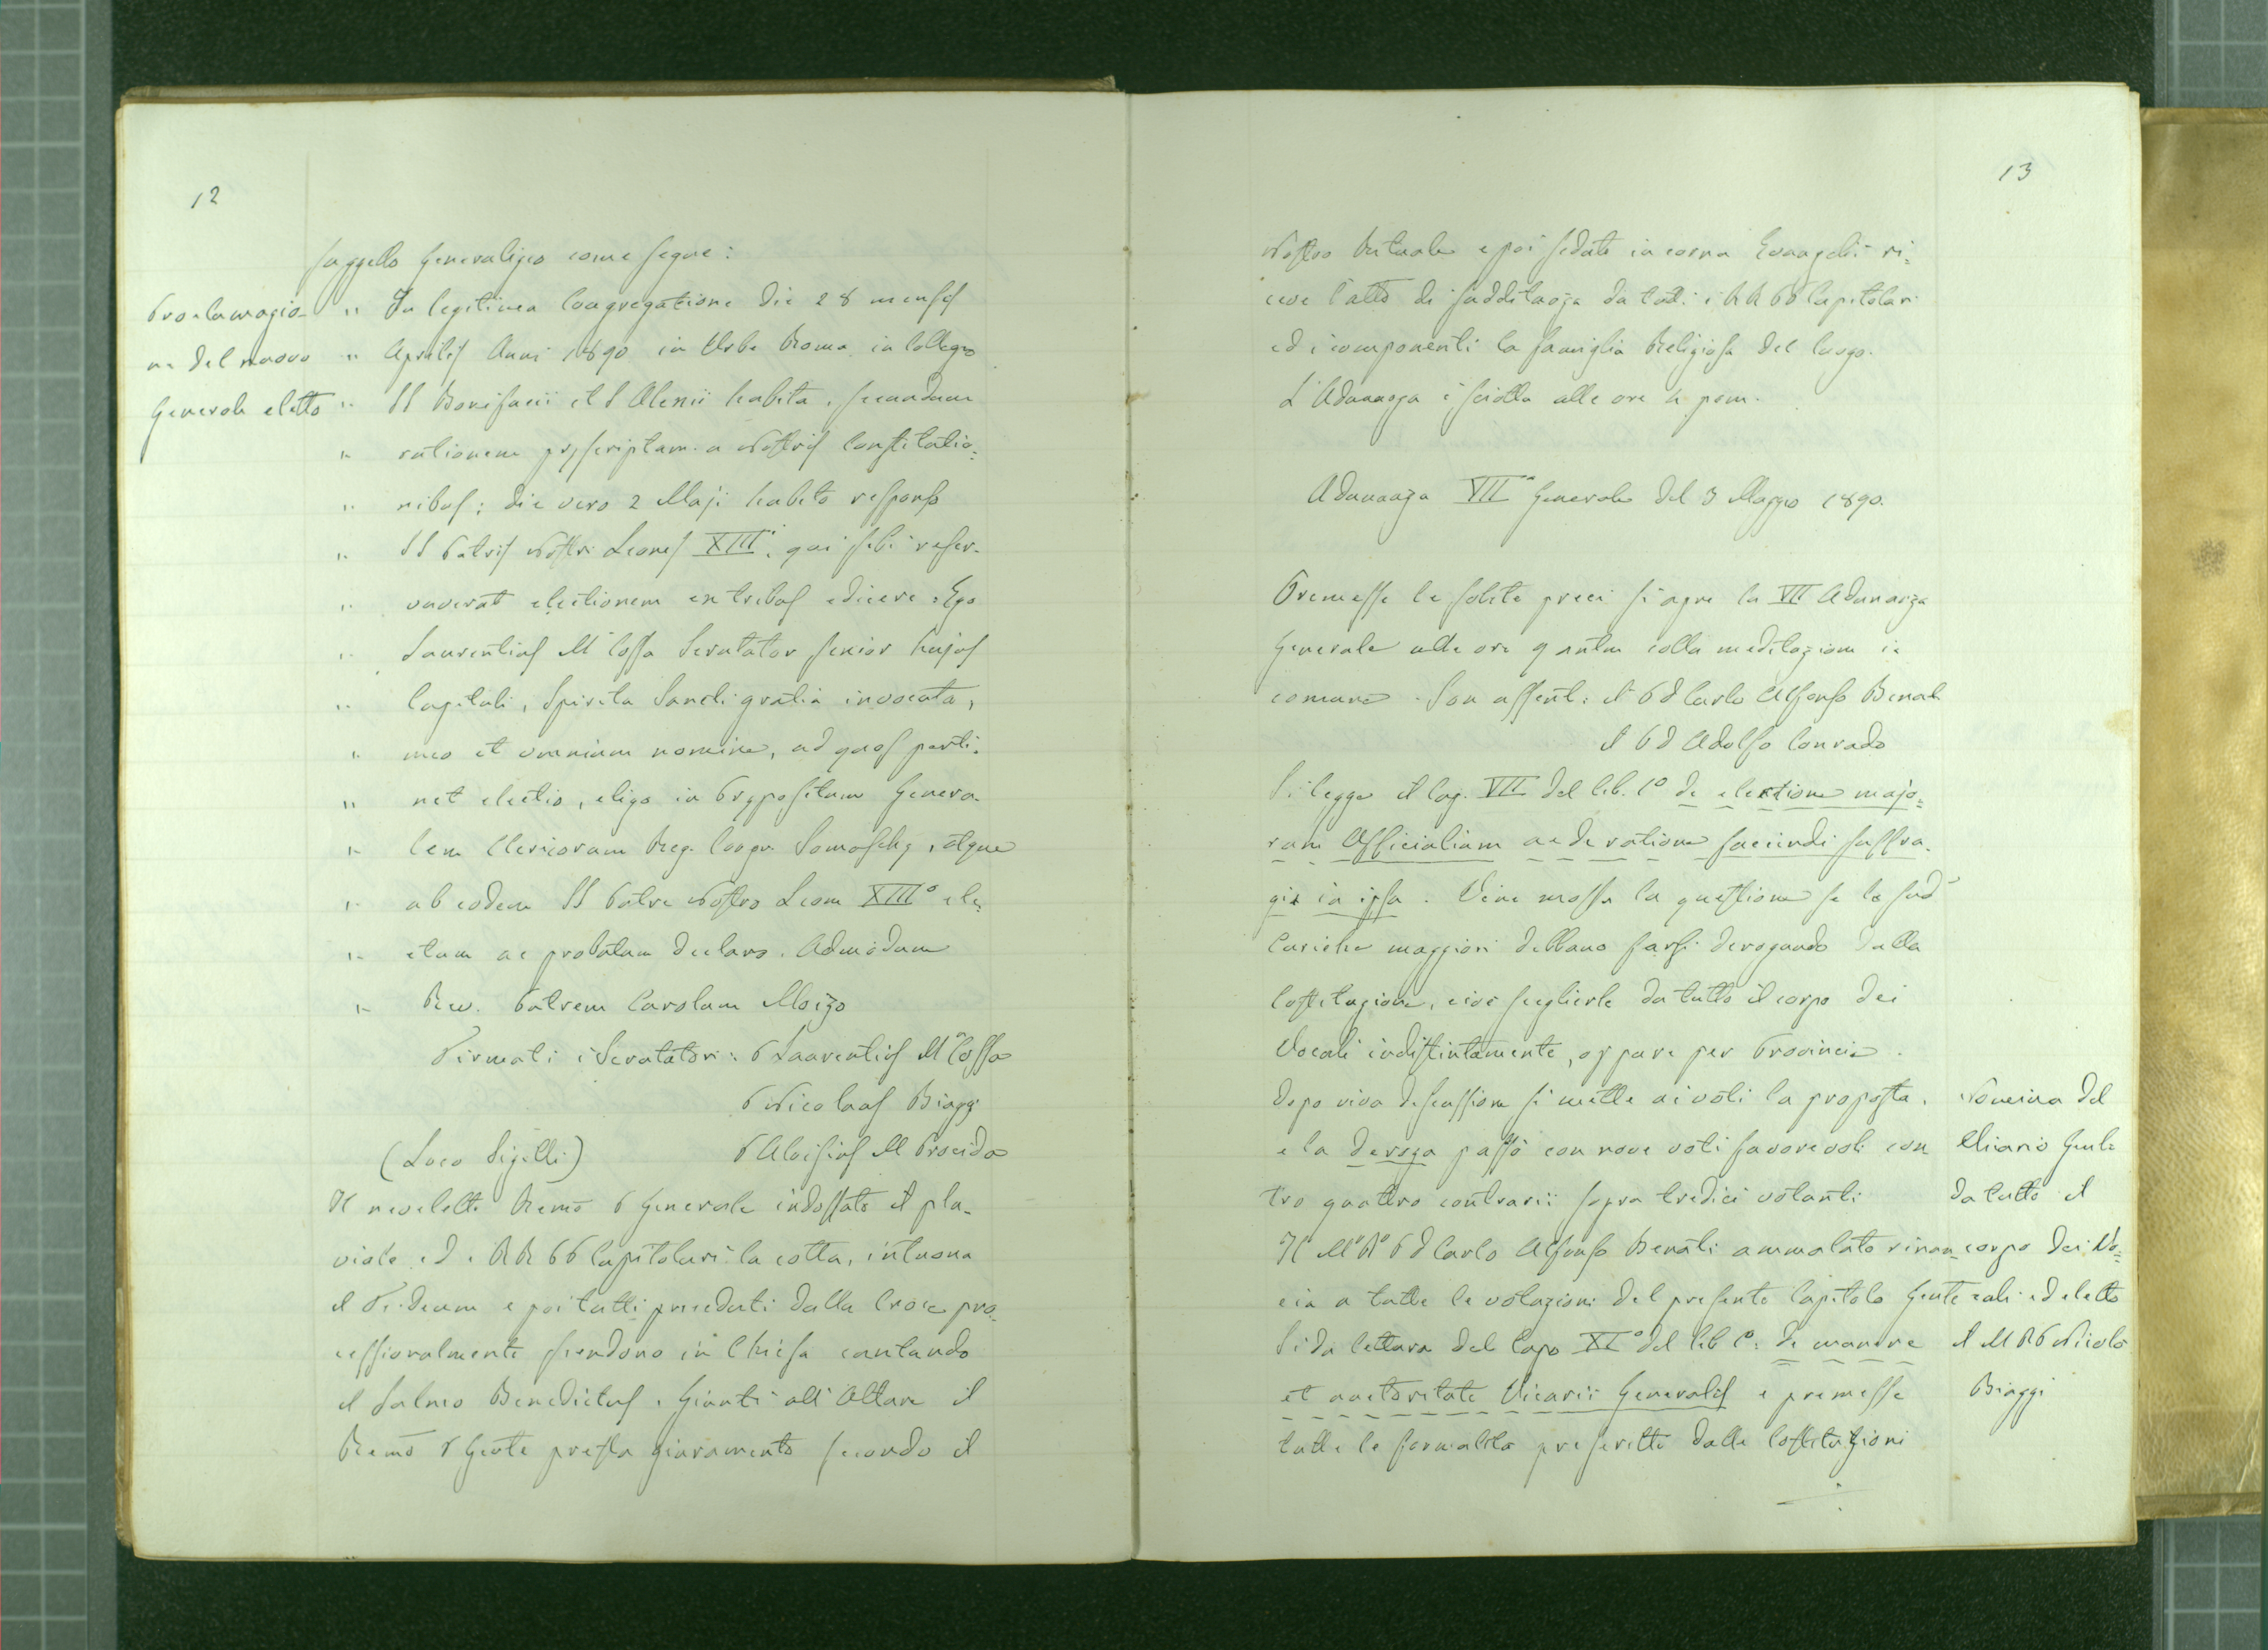 12
suggello Generalizio come segue:
Proclamazio-
ne del nuovo
Generale eletto
" In legitima Congregatione die 28 mensis
" Aprilis Anni 1890 in Urbe Roma in Collegio
" SS Bonifacii et S Alexii habita, secundum
" rationem præscriptam a Nostris Constitutio=
" nibus; die vero 2 Maji habito responso
" SS Patris Nostri Leonis XIIIi, qui sibi reser-
" vaverat electionem ex tribus edicere: Ego
" Laurentius Ma Cossa Scrutator senior hujus
" Capituli, Spiritu Sancti gratia invocata,
" meo et omnium nomine, ad quos perti-
" net electio, eligo in Præpositum Genera-
" lem Clericorum Reg. Congr. Somaschæ, atque
" ab eodem SS Patre Nostro Leone XIIIo ele=
" ctum ac probatum declaro. Admodum
" Rev. Patrem Carolum Moizo
Firmati i Scrutatori: P Laurentius Ma Cossa
P Nicolaus Biaggi
(Loco Sigilli) P Aloisius M Procida
Il neoeletto Remo P Generale indossato il plu-
viale ed i RR PP Capitolari la cotta, intuona
il Te-Deum e poi tutti preceduti dalla Croce pro-
cessionalmente scendono in Chiesa cantando
il Salmo Benedictus. Giunti all'Altare il
Remo P Gente presta giuramento secondo il
13
Nostro Rituale e poi seduto in cornu Evangelii ri=
ceve l'atto di sudditanza da tutti i RR PP Capitolari
ed i componenti la famiglia Religiosa del luogo.
L'Adunanza è sciolta alle ore 4 pom.
Adunanza VIIa Generale del 3 Maggio 1890.
Premesse le solite preci si apre la VII Adunanza
Generale alle ore 9 antm colla meditazione in
comune. Son assenti: il P D Carlo Alfonso Benati
il P D Adolfo Conrado
Si legge il Cap. VII del lib. 1o de electione majo=
rum Officialium ac de ratione faciendi suffra-
gia in ipsa. Viene mossa la questione se le sudte
Cariche maggiori debbano farsi derogando dalla
Costituzione, cioè sceglierle da tutto il corpo dei
Vocali indistintamente, oppure per Provincia.
Dopo viva discussione si mette ai voti la proposta,
e la deroga passò con nove voti favorevoli con
tro quattro contrarii sopra tredici votanti
Il Mo Ro P D Carlo Alfonso Benati ammalato rinun-
cia a tutte le votazioni del presente Capitolo Gente
Si da lettura del Capo XIo del lib 1o: de munere
et auctoritate Vicarii Generalis e premesse
tutte le formalità prescritte dalle Costituzioni
Nomina del
Vicario Genle
da tutto il
corpo dei Vo=
cali ed eletto
il M R P Nicolò
Biaggi